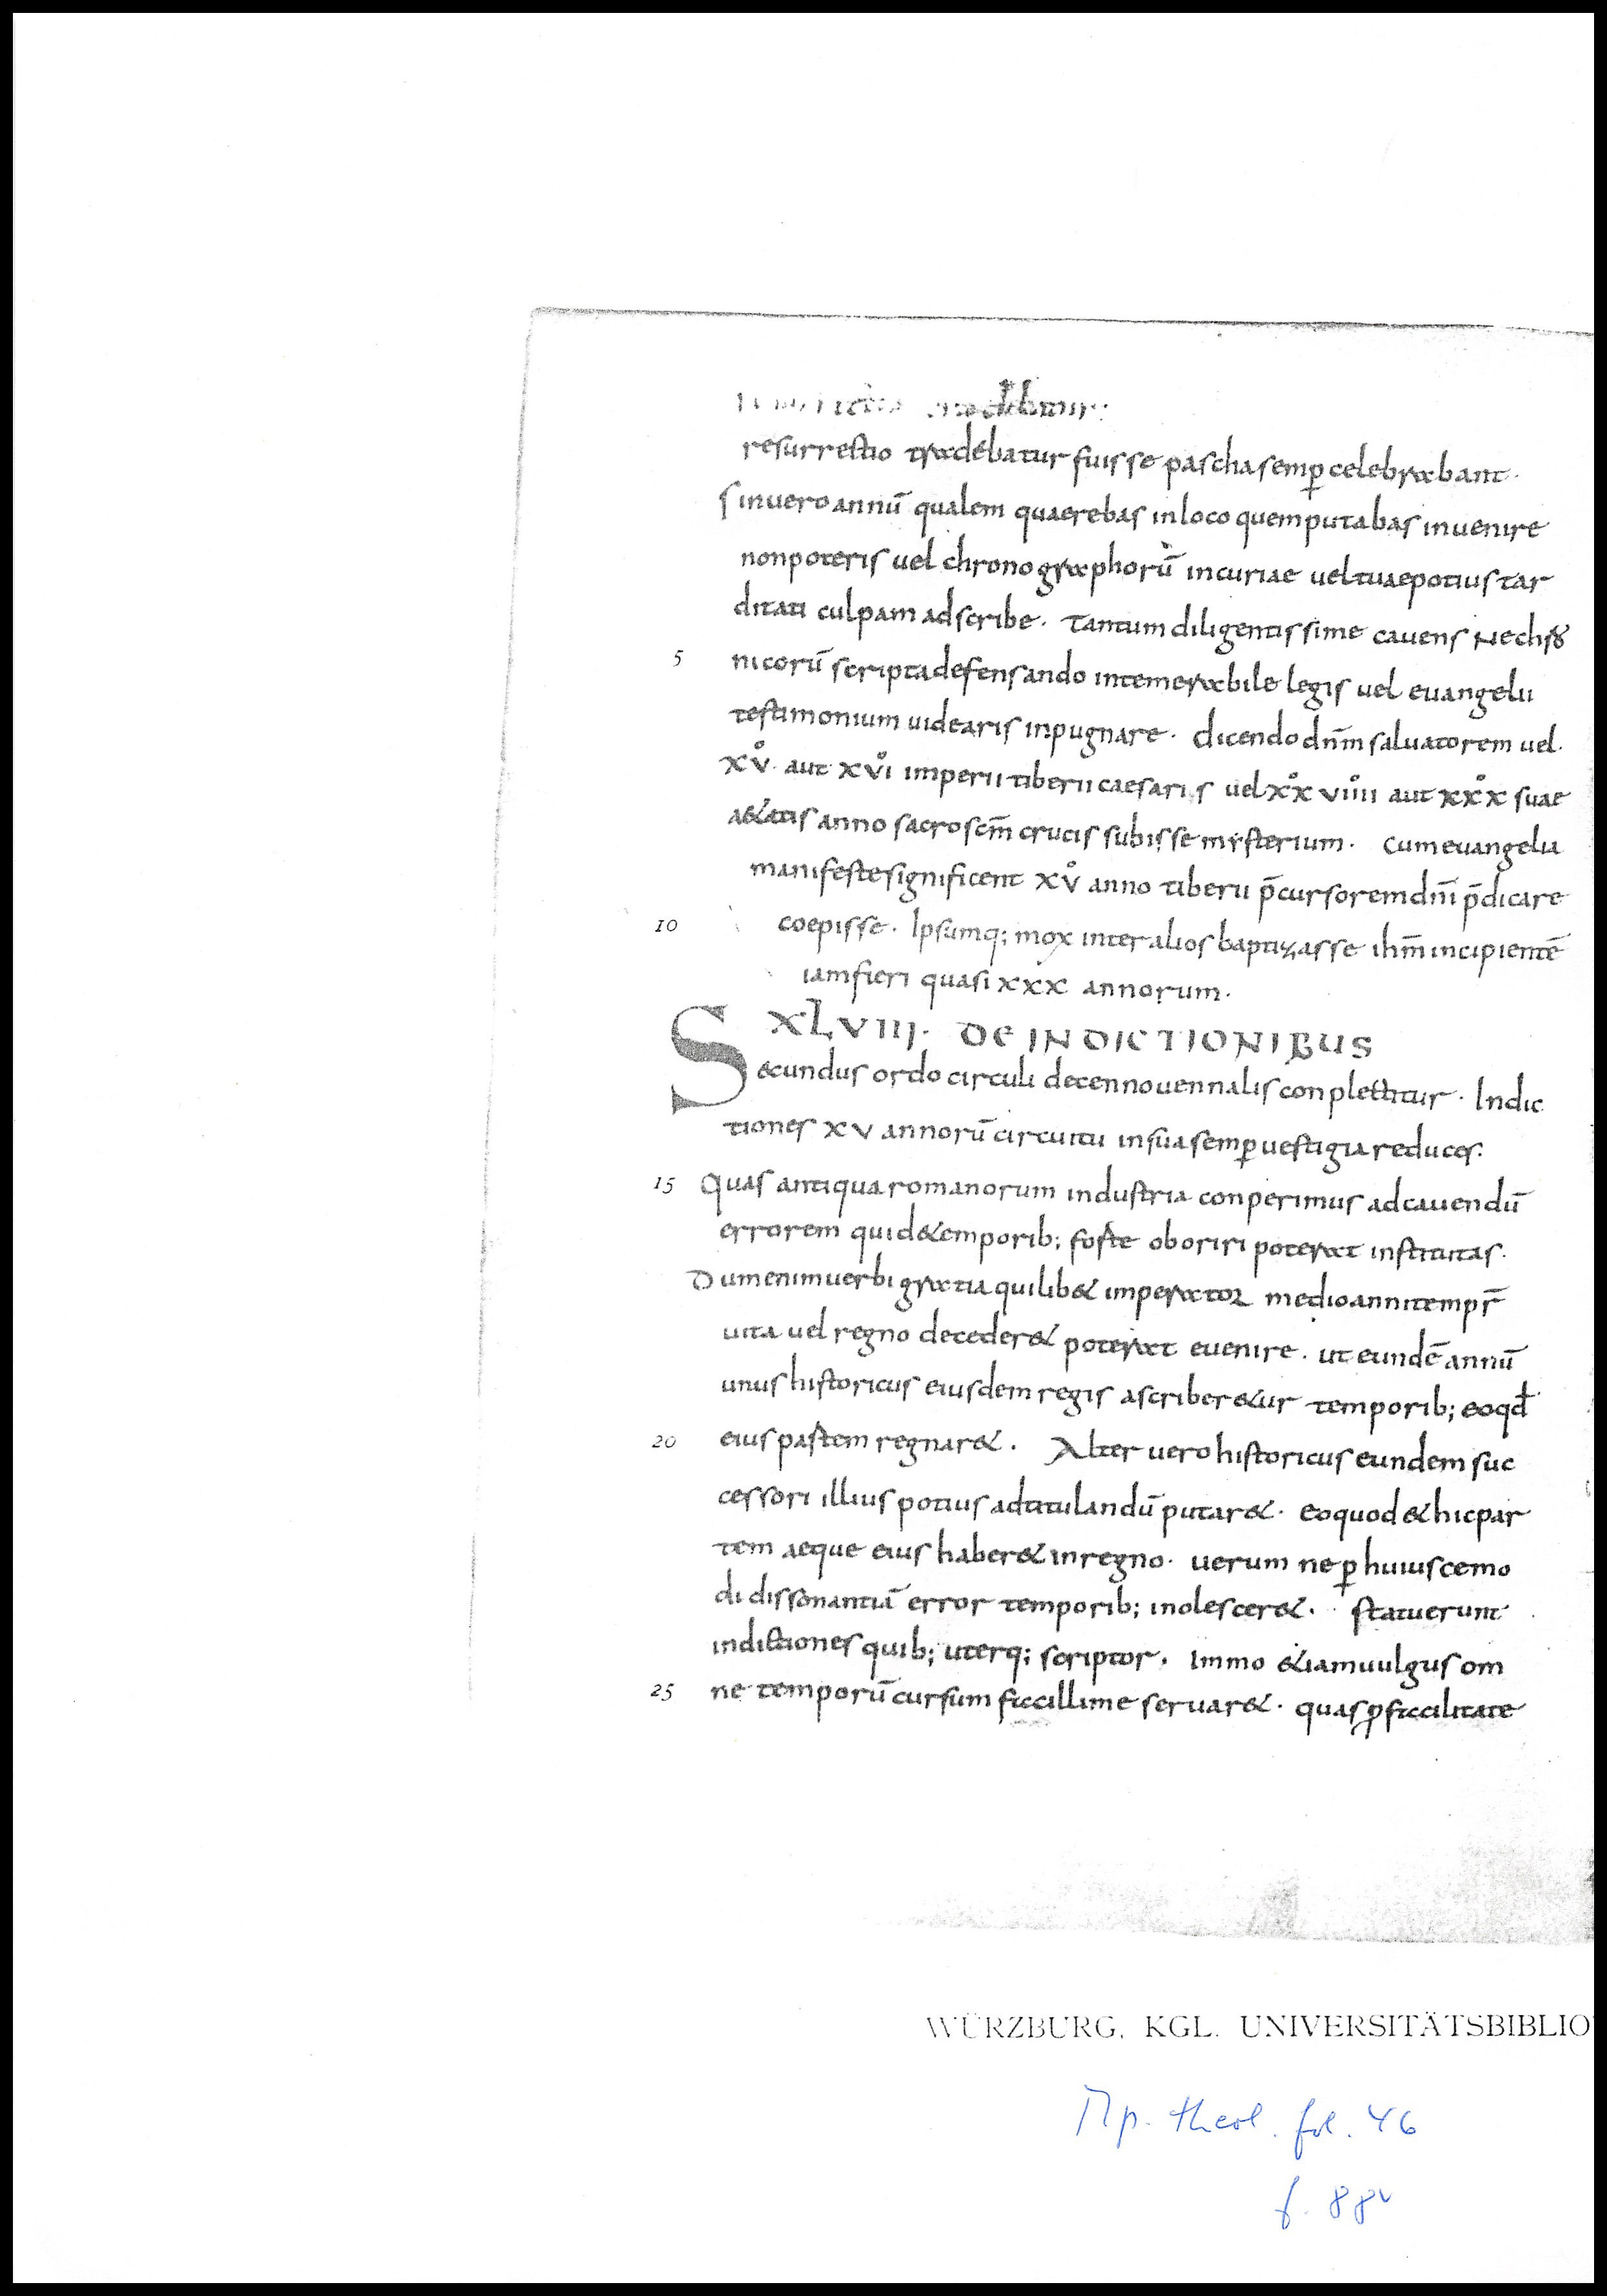 resurrectio tradebatur fuisse pascha semp̄ celebrabant·
sin uero annū qualem quaerebas in loco quem putabas inuenire
non poteris uel chronographorū incuriae uel tuae potius tar
ditati culpam adscribe· Tantum diligentissime cauens ne chro
5 nicorū scripta defensando intemerabile legis uel euangelii
testimonium uidearis inpugnare· dicendo dn̄m saluatorem uel·
xv̊· aut xv̊i imperii tiberii caesaris uel xx̊viiii aut xxx̊ suae
aetatis anno sacroscm̄ crucis subisse mysterium· Cum euangelia
manifeste significent xv̊ anno tiberii p̄cursorem dn̄i p̄dicare
10 coepisse· Ipsumq; mox inter alios baptizasse ihm̄ incipientē
iam fieri quasi xxx annorum·
XLVIII· DE INDICTIONIBUS
Secundus ordo circuli decennouennalis conplectitur· Indic
tiones xv annorū circuitu in sua semp̄ uestigia reduces:
15 Quas antiqua romanorum industria conperimus ad cauendū
errorem qui de temporib; forte oboriri poterat institutas·
Dum enim uerbi gratia quilib& imperator medio anni tempr̄
uita uel regno deceder& poterat euenire· ut eundē annū
unus historicus eiusdem regis ascriber&ur temporib; eo qđ
20 eius partem regnar&· Alter uero historicus eundem suc
cessori illius potius adtitulandū putar&· eo quod & hic par
tem aeque eius haber& in regno· uerum ne p̱ huiuscemo
di dissonantiā error temporib; inolescer&· statuerunt
indictiones quib; uterq; scriptor· Immo &iam uulgus om
25 ne temporū cursum faccillime seruar&· quas ꝓ faccilitate
WÜRZBURG, KGL. UNIVERSITÄTSBIBLIO
Mp. theol. fol. 46
f. 88v